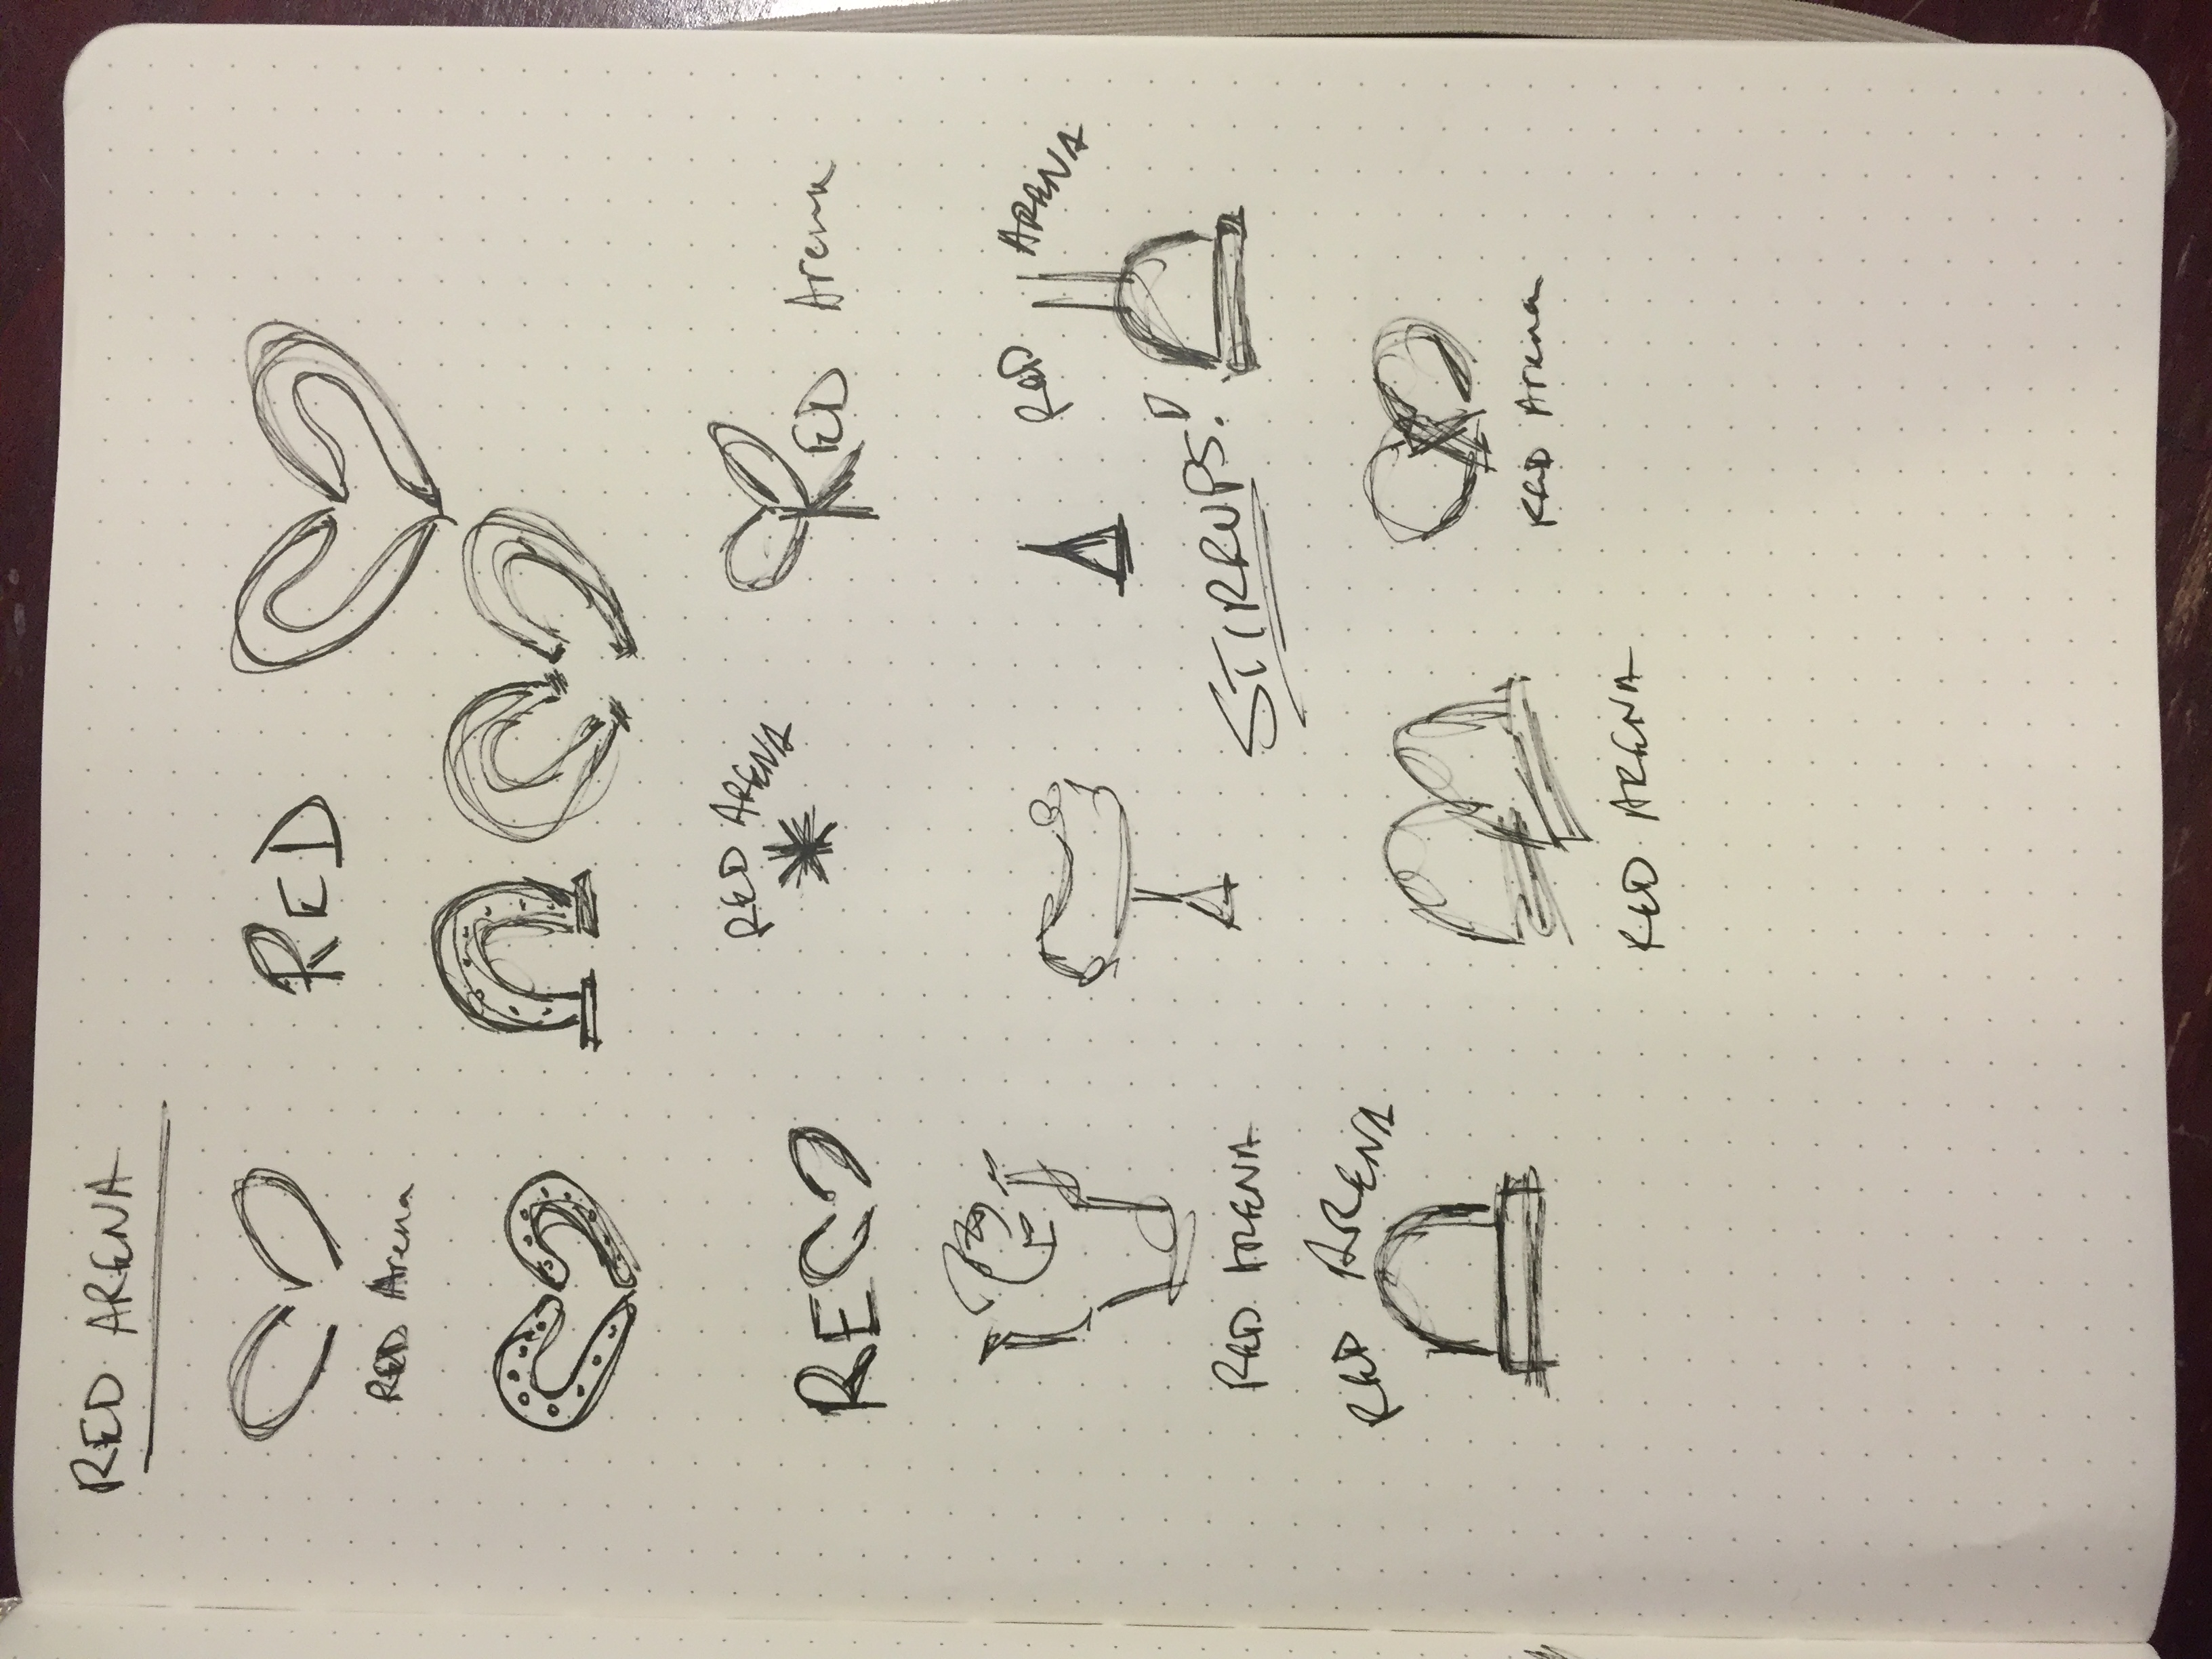 RED ARENA
RED Arena
RED
RE
RED ARENA
RED Arena
RED ARENA
RED ARENA
STIRRUPS!
RED ARENA
RED ARENA
RED Arena